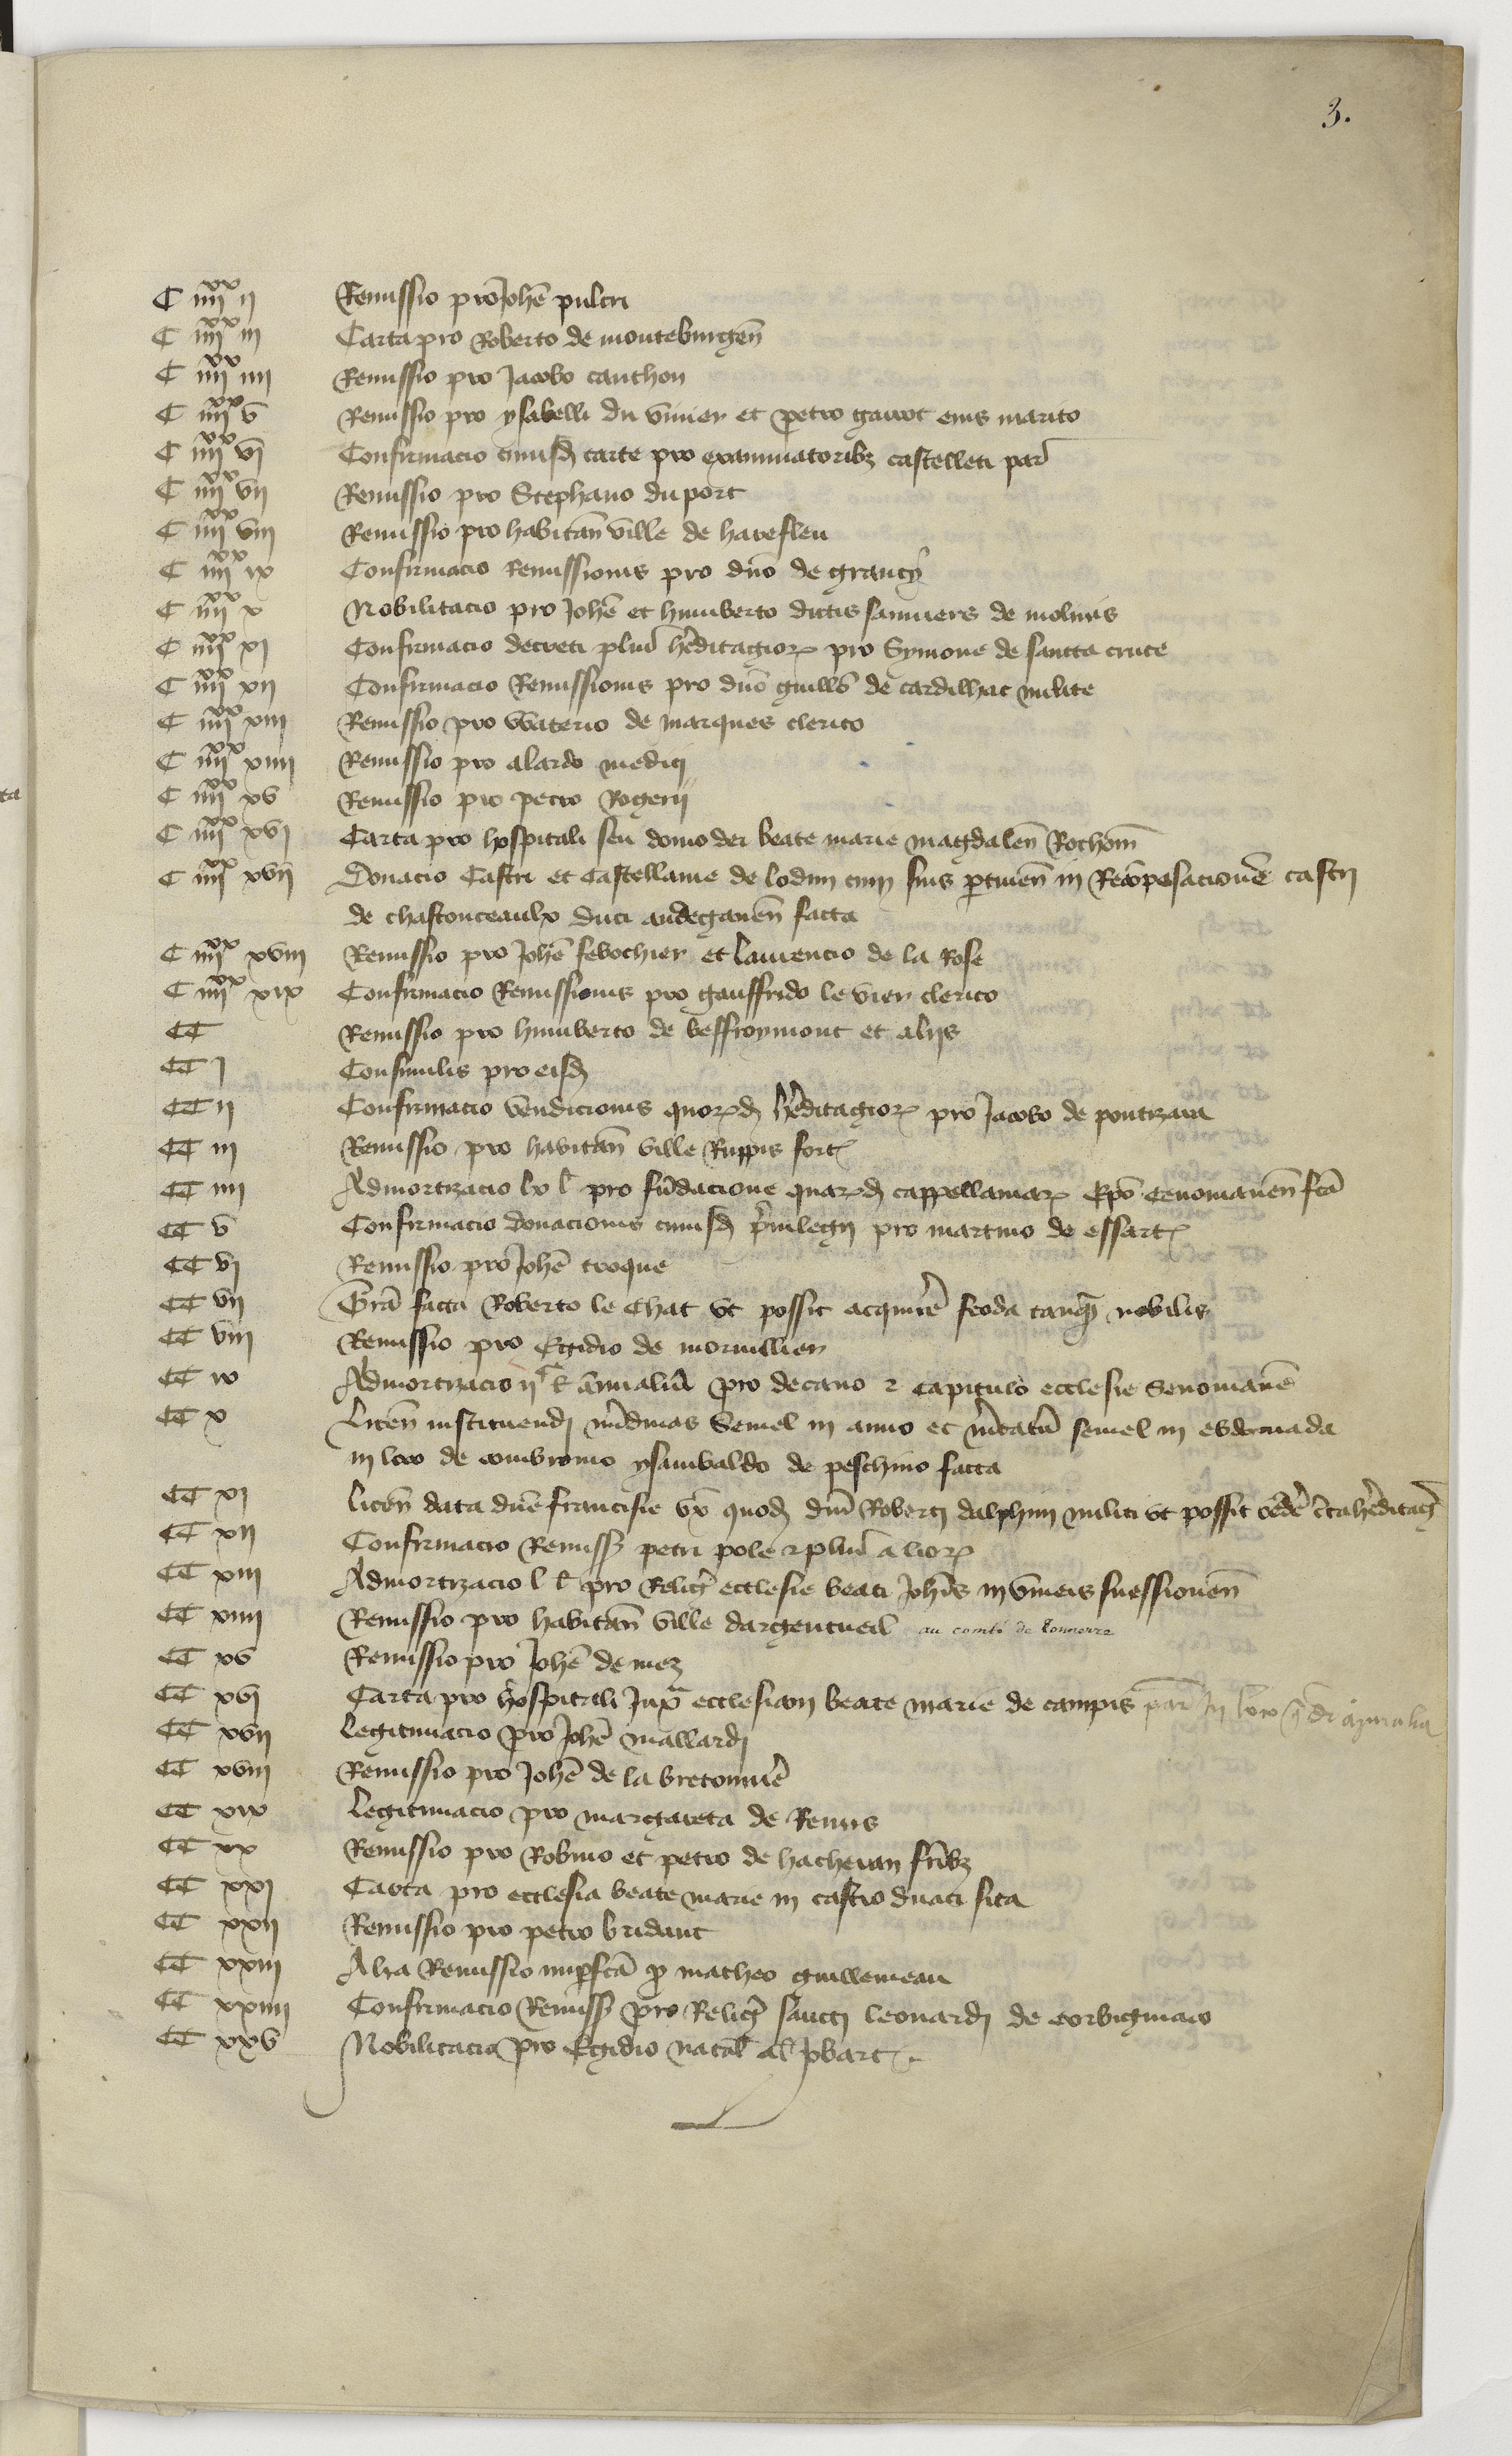 3.
C iiii^xx ii Remissio pro Johē pulcri
C iiii^xx iii Carta pro Roberto de monteburgeñ
C iiii^xx iiii Remissio pro Jacobo cauchon
C iiii^xx v Remissio pro ysabelli du vivier et petro gairot eius marito
C iiii^xx vi Confirmacio cuiusd carte pro examinatoribz castelleti par
C iiii^xx vii Remissio pro Stephano du port
C iiii^xx viii Remissio pro habitañ ville de harefleu
C iiii^xx ix Confirmacio Remissionis pro dño de grancy
C iiii^xx x Nobilitacio pro Johē et humberto dictis sanniers de molinis
C iiii^xx xi Confirmacio decreti pluiū hēditagioꝝ pro Symone de sancta cruce
C iiii^xx xii Confirmacio Remissionis pro dño guillō de cardilhac milite
C iiii^xx xiii Remissio pro Waterio de marques clerico
C iiii^xx xiiii Remissio pro alardo medici
C iiii^xx xv Remissio pro petro Rogerii
C iiii^xx xvi Carta pro hospitali seu domo dei beate marie magdaleñ Rothom̄
C iiii^xx xvii Donacio Castri et Castellanie de lodun cum suis ptineñ in Recōpēsacionē castri
de chastonceaulx duci andegaueñ facta
C iiii^xx xviii Remissio pro Johē feuochier et laurencio de la Rose
C iiii^xx xix Confirmacio Remissionis pro gauffrido le vier clerico
CC Remissio pro humberto de beffroymont et alijs
CC i Consimilis pro eisd
CC ii Confirmacio vendicionis quoꝝd hēditagioꝝ pro Jacobo de pontizara
CC iii Remissio pro habitañ ville Ruppis fortꝭ
CC iiii Admortizacio lx l pro fūdacione quaꝝd cappellaniaꝝ Ep̄o Cenomaneñ fcā
CC v Confirmacio donacionis cuiusd p̄uilegii pro martino de essartꝭ
CC vi Remissio pro Johē troque
CC vii Grā facta Roberto le Chat vt possit acquirē feoda tanq̄ nobilis
CC viii Remissio pro Egidio de moruillier
CC ix Admortizacio annualiū pro decano ⁊ capitulo ecclesie Senomaneñ
CC x Liceñ instituendi nūdinas Semel in anno et m̄catū semel in ebdomada
in loco de combronio ysambaldo de peschino facta
CC xi Liceñ data dñe francisie vx̄ quōd dñi Roberti dalphini militi vt possit vēdē c̄ta hēditag
CC xii Confirmacio Remiss petri pole ⁊ pluiū alioꝝ
CC xiii Admortizacio l l pro Relig ecclesie beati Joh̄is in vineis suessioneñ
CC xiiii Remissio pro habitañ ville dargentueil au comté de tonnerre
CC xv Remissio pro Johē de mez
CC xvi Carta pro hospitali Juxᵃ ecclesiam beate marie de campis par in loco
CC xvii Legitimacio pro Johē mallardi
CC xviii Remissio pro Johē de la bretonnirē
CC xix Legitimacio pro margareta de Remis
CC xx Remissio pro Robino et petro de hacheuan frībz
CC xxi Carta pro ecclesia beate marie in castro duaci sita
CC xxii Remissio pro petro bridant
CC xxiii Alia Remissio impfcā ꝓ matheo guillemeau
CC xxiiii Confirmacio Remiss pro Relig sancti leonardi de corbigniaco
CC xxv Nobilitacia pro Egidio natal